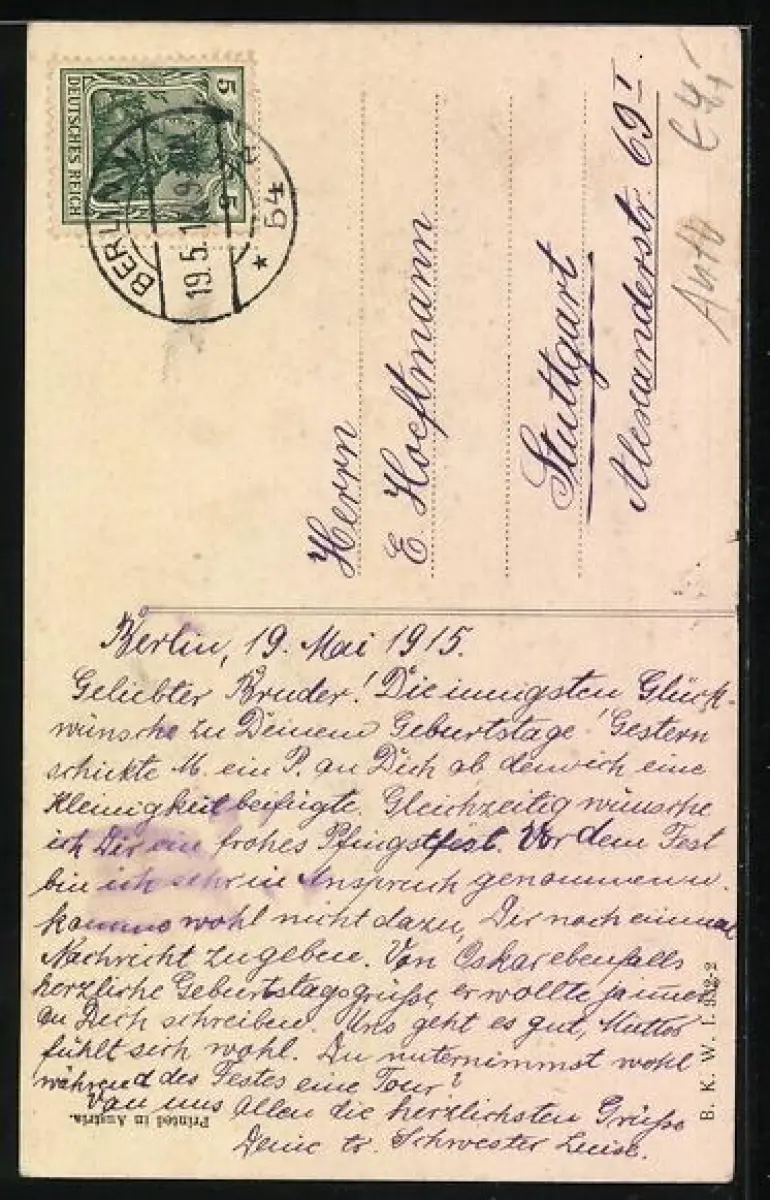 5
DEUTSCHES REICH
5
BERLIN
54
*
19.5.1
Herrn
E. Hoeftmann
Stuttgart
Alexanderstr. 69 I.
Auto
Berlin, 19. Mai 1915.
Geliebter Bruder! Die innigsten Glück-
wünsche zu Deinem Geburtstage! Gestern
schickte M. ein P. an Dich ab dem ich eine
Kleinigkeit beifügte. Gleichzeitig wünsche
ich Dir ein frohes Pfingstfest. Vor dem Fest
bin ich sehr in Anspruch genommen u.
komme wohl nicht dazu, Dir noch einmal
Nachricht zu geben. Von Oskar ebenfalls
herzliche Geburtstagsgrüße, er wollte ja immer
an Dich schreiben. Uns geht es gut, Mutter
fühlt sich wohl. Du unternimmst wohl
während des Festes eine Tour?
Von uns Allen die herzlichsten Grüße
Deine tr. Schwester Luise.
Printed in Austria.
B. K. W. I.